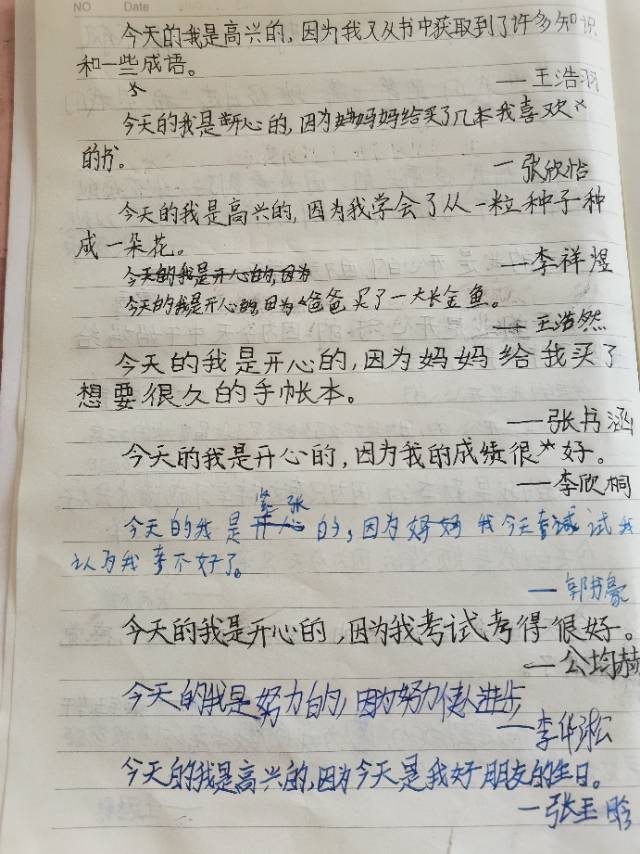 NO Date
今天的我是高兴的，因为我又从书中获取到了许多知识
和一些成语。
——王浩羽
今天的我是开心的，因为妈妈给买了几本我喜欢
的书。
—张欣怡
今天的我是高兴的，因为我学会了从一粒种子种
成一朵花。
—李祥煜
今天的我是开心的，因为
今天的我是开心的，因为爸爸买了一大长金鱼。
—王浩然
今天的我是开心的，因为妈妈给我买了
想要很久的手帐本。
——张书涵
今天的我是开心的，因为我的成绩很好。
—李欣桐
紧张
今天的我是开心的，因为我今天考试我
认为我考不好了。
—郭书豪
今天的我是开心的，因为我考试考得很好。
—公均赫
今天的我是努力的，因为努力使人进步
—李华淞
今天的我是高兴的，因为今天是我好朋友的生日。
—张玉晗